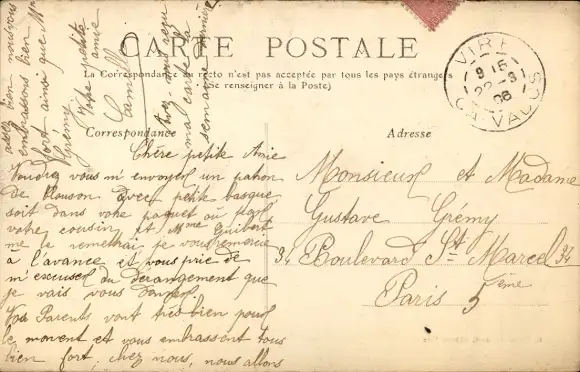 CARTE POSTALE
La Correspondance au recto n'est pas acceptée par tous les pays étrangers
(Se renseigner à la Poste)
Correspondance
Adresse
VIRE
9 15
22-8
08
CALVADOS
Chère petite Amie
Voudrez vous m'envoyer un patron
de blouson avec petite basque
soit dans votre paquet ou pour
votre cousin, et Mme Guibert
me le remettrai je vous remercie
à l'avance et vous prie de
m'excuser du dérangement que
je vais vous donner.
Vos Parents vont très bien pour
le moment et vous embrassent tous
bien fort, chez nous, nous allons
assez bien nous vous
embrassons bien
fort ainsi que Mr
Grémy
Votre petite
amie
Camille
avez-vous reçu
ma carte de la
semaine dernière
Monsieur et Madame
Gustave Grémy
34 Boulevard St Marcel 34
Paris 5ème